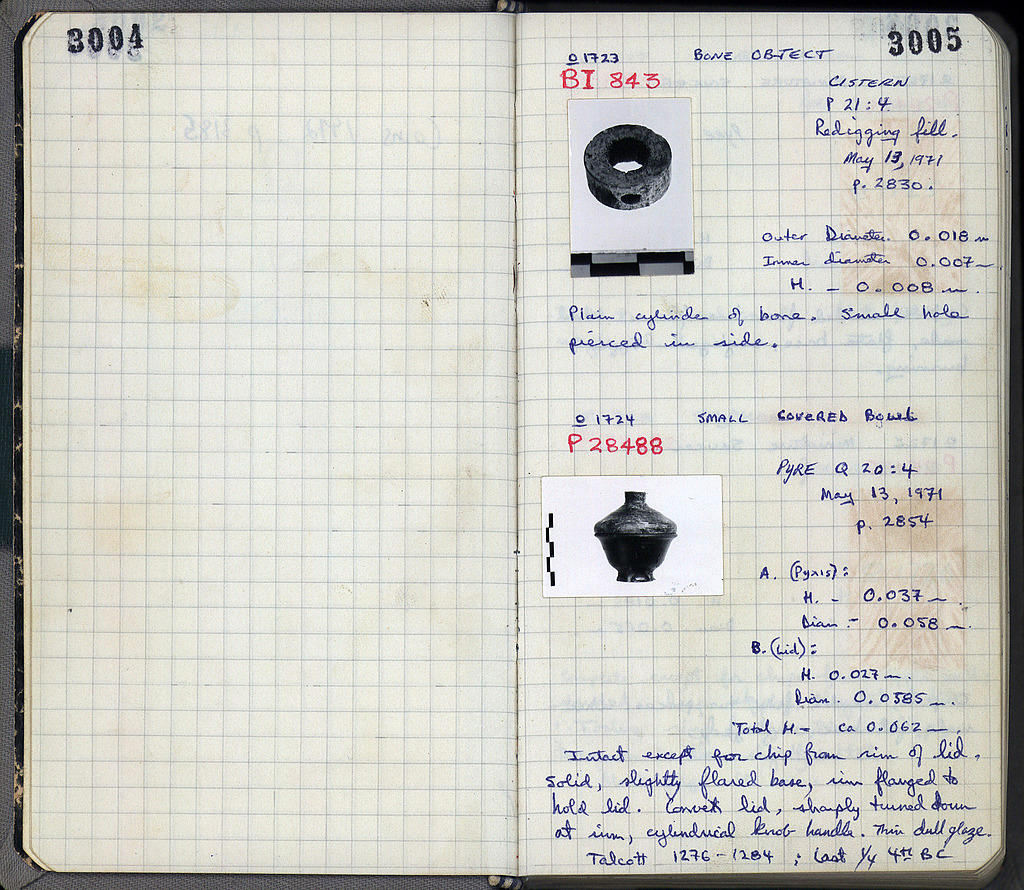 3004
3005
O 1723 BONE OBJECT
BI 843
CISTERN
P 21:4
Redigging fill.
May 13, 1971
p. 2830.
Outer Diameter 0.018 m
Inner diameter 0.007 m
H. - 0.008 m.
Plain cylinder of bone. Small hole
pierced in side.
O 1724 SMALL COVERED BOWL
P 28488
PYRE Q 20:4
May 13, 1971
p. 2854
A. (Pyxis):
H. - 0.037 m.
Diam - 0.058 m.
B. (Lid):
H. 0.027 m.
Diam. 0.0585 m.
Total H. - ca 0.062 m.
Intact except for chip from rim of lid.
Solid, slightly flared base, rim flanged to
hold lid. Convex lid, sharply turned down
at rim, cylindrical knob handle. Thin dull glaze.
Talcott 1276-1284; Last 1/4 4th BC